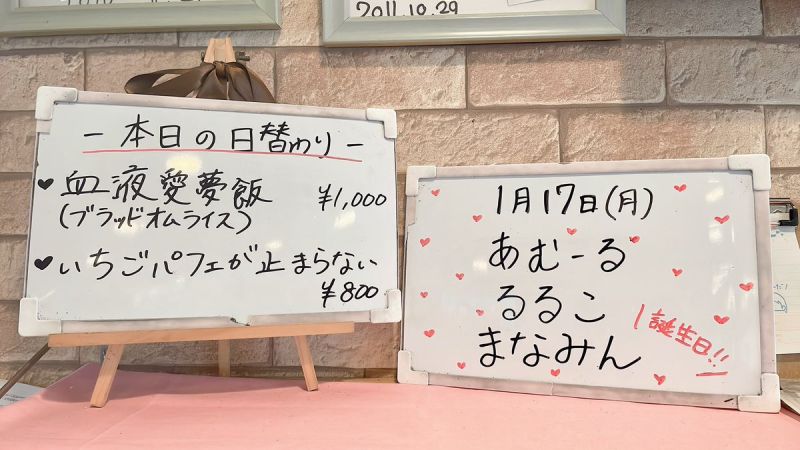 2011.10.29
- 本日の日替わり -
♥ 血液愛夢飯
(ブラッドオムライス)
¥1,000
♥ いちごパフェが止まらない
¥800
1月17日(月)
あむーる
るるこ
まなみん
誕生日!!